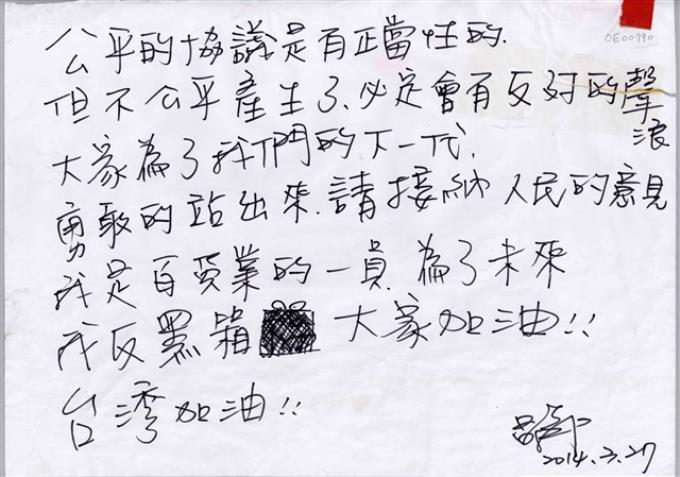 OE00790
公平的協議是有正當性的.
但不公平產生了、必定會有反對的聲浪
大家為了我們的下一代.
勇敢的站出來.請接納人民的意見
我是百貨業的一員.為了未來
我反黑箱 大家加油!!
台灣加油!!
2014.3.27